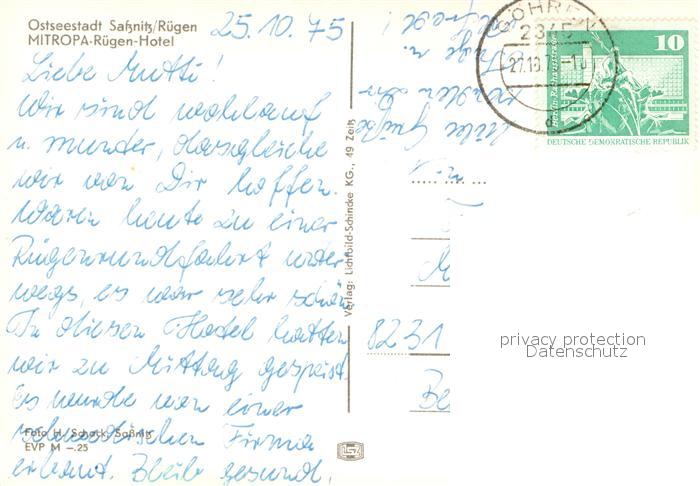 Ostseestadt Saßnitz/Rügen
MITROPA-Rügen-Hotel
25.10.75
Liebe Mutti!
Wir sind wohlauf
u. munter, dasgleiche
wir von Dir hoffen.
Waren heute zu einer
Rügenrundfahrt unter-
wegs, es war sehr schön
In diesem Hotel hatten
wir zu Mittag gespeist.
Es wurde von einer
schwedischen Firma
erbaut. Bleib gesund,
Foto H. Schack, Saßnitz
EVP M –.25
Verlag: Lichtbild-Schincke KG., 49 Zeitz
viele Grüße
GÖHREN
2345
10
DEUTSCHE DEMOKRATISCHE REPUBLIK
8231
Be
privacy protection
Datenschutz